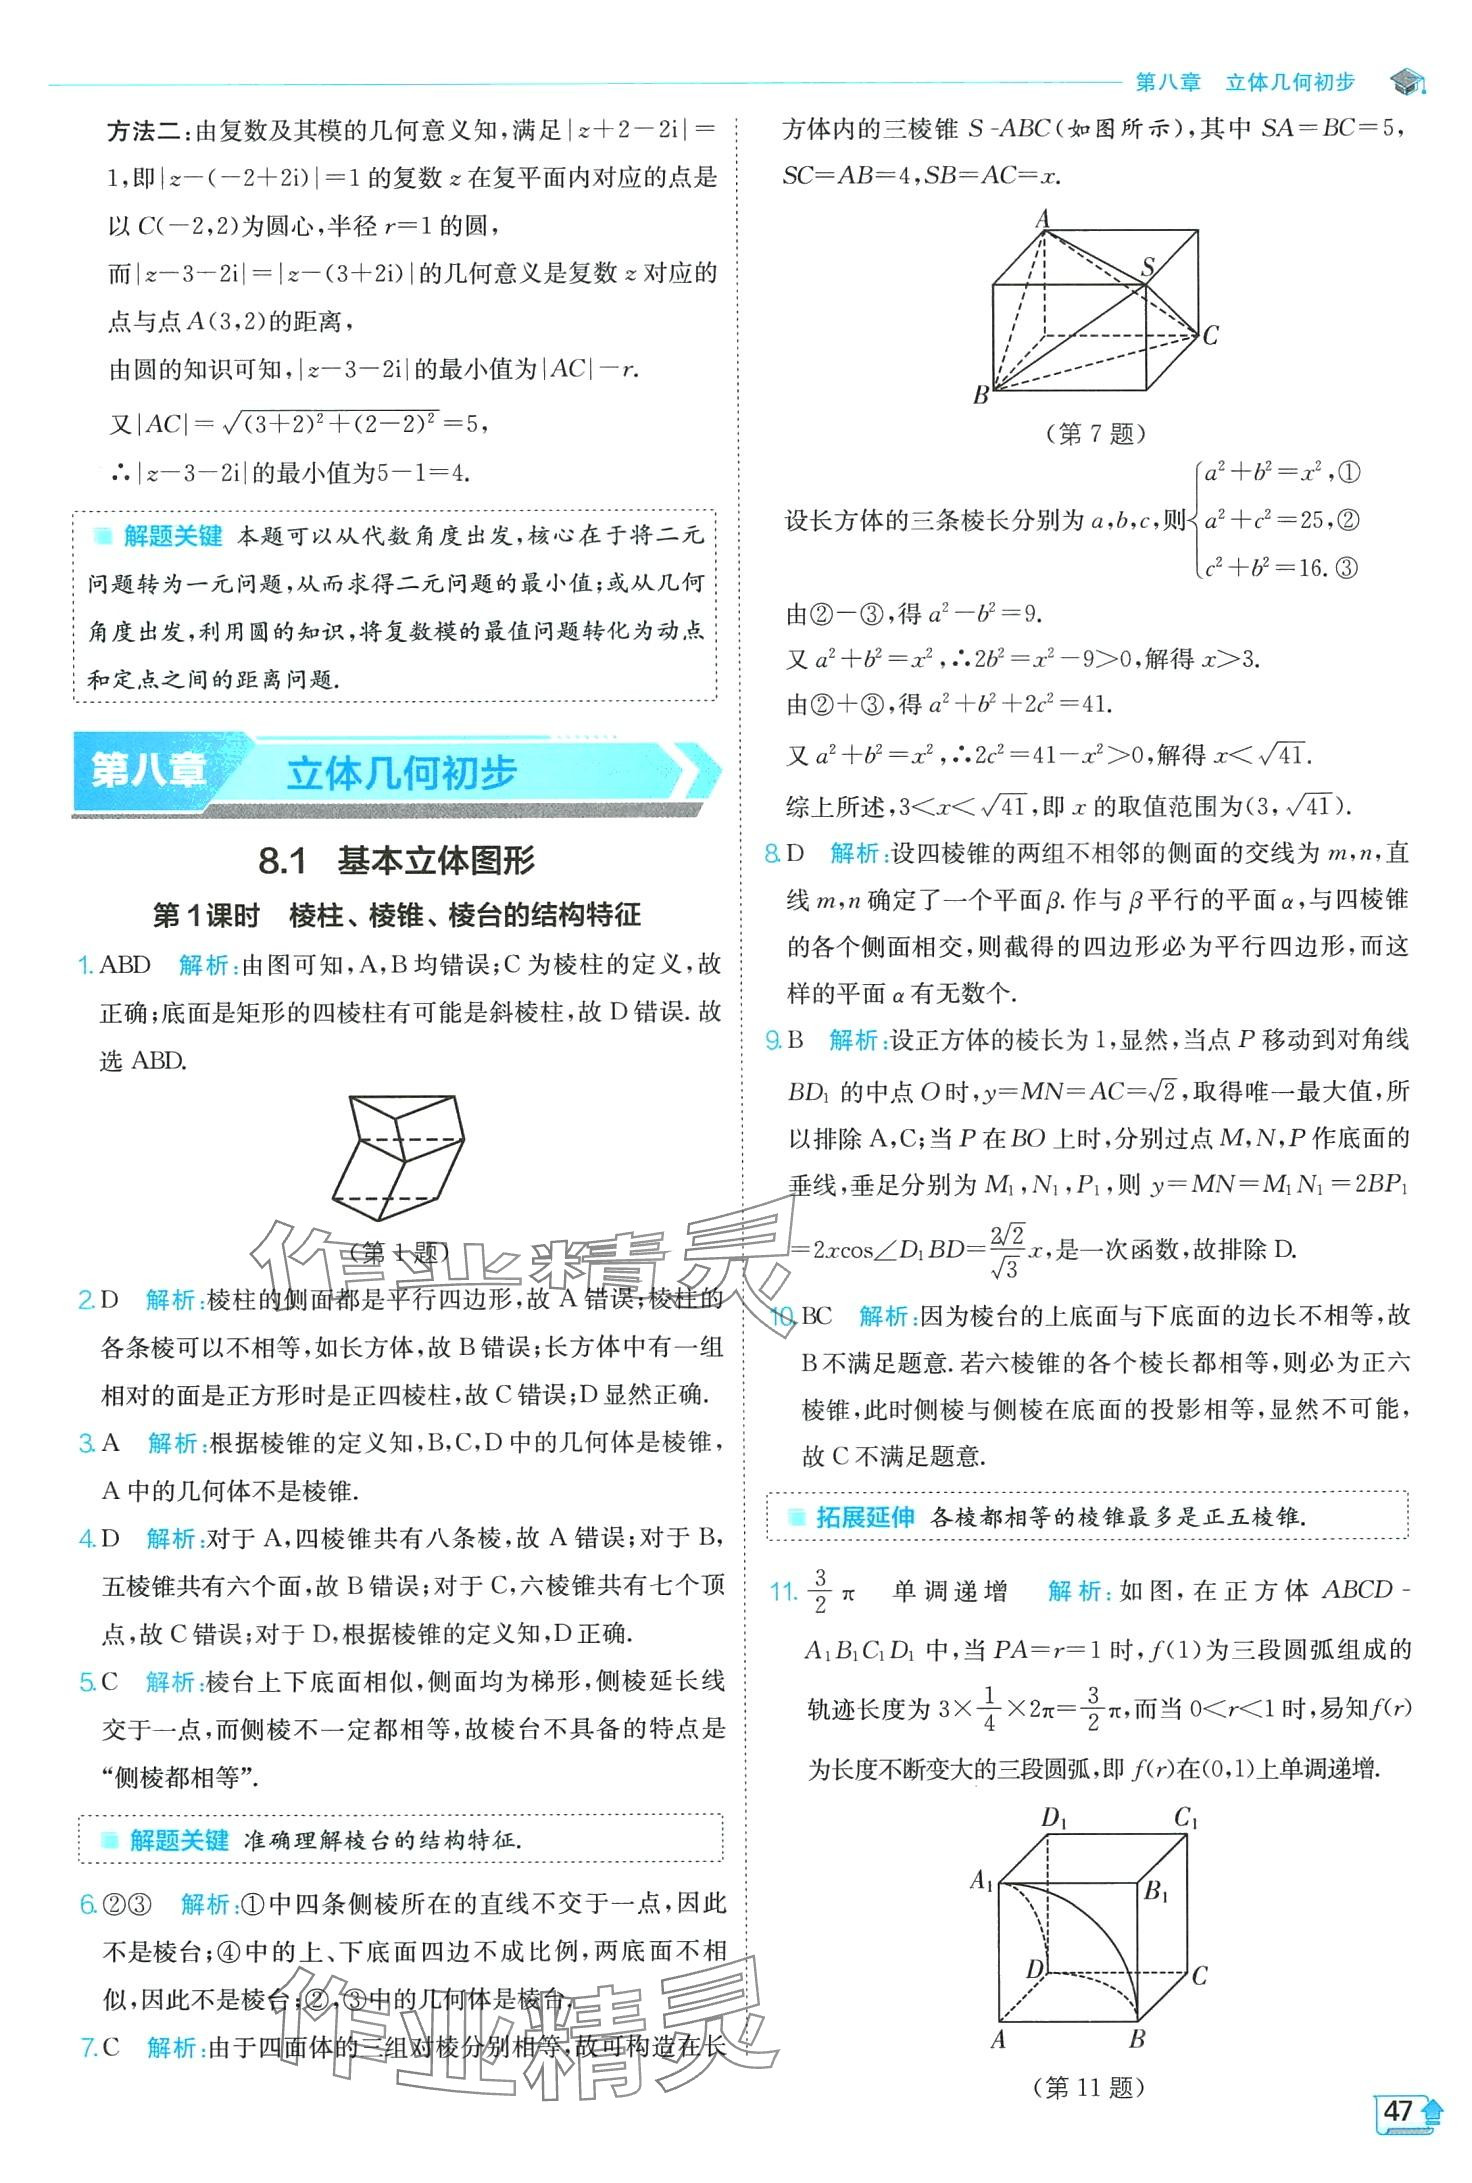 第八章 立体几何初步
方法二:由复数及其模的几何意义知,满足|z+2-2i|=
1,即|z-(-2+2i)|=1的复数z在复平面内对应的点是
以C(-2,2)为圆心,半径r=1的圆,
而|z-3-2i|=|z-(3+2i)|的几何意义是复数z对应的
点与点A(3,2)的距离,
由圆的知识可知,|z-3-2i|的最小值为|AC|-r.
又|AC|=√(3+2)²+(2-2)²=5,
∴|z-3-2i|的最小值为5-1=4.
解题关键 本题可以从代数角度出发,核心在于将二元
问题转为一元问题,从而求得二元问题的最小值;或从几何
角度出发,利用圆的知识,将复数模的最值问题转化为动点
和定点之间的距离问题.
第八章 立体几何初步
8.1 基本立体图形
第1课时 棱柱、棱锥、棱台的结构特征
1. ABD 解析:由图可知,A,B均错误;C为棱柱的定义,故
正确;底面是矩形的四棱柱有可能是斜棱柱,故D错误.故
选ABD.
(第1题)
2. D 解析:棱柱的侧面都是平行四边形,故A错误;棱柱的
各条棱可以不相等,如长方体,故B错误;长方体中有一组
相对的面是正方形时是正四棱柱,故C错误;D显然正确.
3. A 解析:根据棱锥的定义知,B,C,D中的几何体是棱锥,
A中的几何体不是棱锥.
4. D 解析:对于A,四棱锥共有八条棱,故A错误;对于B,
五棱锥共有六个面,故B错误;对于C,六棱锥共有七个顶
点,故C错误;对于D,根据棱锥的定义知,D正确.
5. C 解析:棱台上下底面相似,侧面均为梯形,侧棱延长线
交于一点,而侧棱不一定都相等,故棱台不具备的特点是
“侧棱都相等”.
解题关键 准确理解棱台的结构特征.
6. ②③ 解析:①中四条侧棱所在的直线不交于一点,因此
不是棱台;④中的上、下底面四边不成比例,两底面不相
似,因此不是棱台;②,③中的几何体是棱台.
7. C 解析:由于四面体的三组对棱分别相等,故可构造在长
方体内的三棱锥S-ABC(如图所示),其中SA=BC=5,
SC=AB=4,SB=AC=x.
A
S
C
B
(第7题)
设长方体的三条棱长分别为a,b,c,则{a²+b²=x²,①
a²+c²=25,②
c²+b²=16.③
由②-③,得a²-b²=9.
又a²+b²=x²,∴2b²=x²-9>0,解得x>3.
由②+③,得a²+b²+2c²=41.
又a²+b²=x²,∴2c²=41-x²>0,解得x<√41.
综上所述,3<x<√41,即x的取值范围为(3,√41).
8. D 解析:设四棱锥的两组不相邻的侧面的交线为m,n,直
线m,n确定了一个平面β.作与β平行的平面α,与四棱锥
的各个侧面相交,则截得的四边形必为平行四边形,而这
样的平面α有无数个.
9. B 解析:设正方体的棱长为1,显然,当点P移动到对角线
BD₁的中点O时,y=MN=AC=√2,取得唯一最大值,所
以排除A,C;当P在BO上时,分别过点M,N,P作底面的
垂线,垂足分别为M₁,N₁,P₁,则y=MN=M₁N₁=2BP₁
=2xcos∠D₁BD=2√2/√3 x,是一次函数,故排除D.
10. BC 解析:因为棱台的上底面与下底面的边长不相等,故
B不满足题意.若六棱锥的各个棱长都相等,则必为正六
棱锥,此时侧棱与侧棱在底面的投影相等,显然不可能,
故C不满足题意.
拓展延伸 各棱都相等的棱锥最多是正五棱锥.
11. 3/2 π 单调递增 解析:如图,在正方体ABCD-
A₁B₁C₁D₁中,当PA=r=1时,f(1)为三段圆弧组成的
轨迹长度为3×1/4×2π=3/2π,而当0<r<1时,易知f(r)
为长度不断变大的三段圆弧,即f(r)在(0,1)上单调递增.
D₁ C₁
A₁ B₁
D C
A B
(第11题)
47
作业精灵
作业精灵